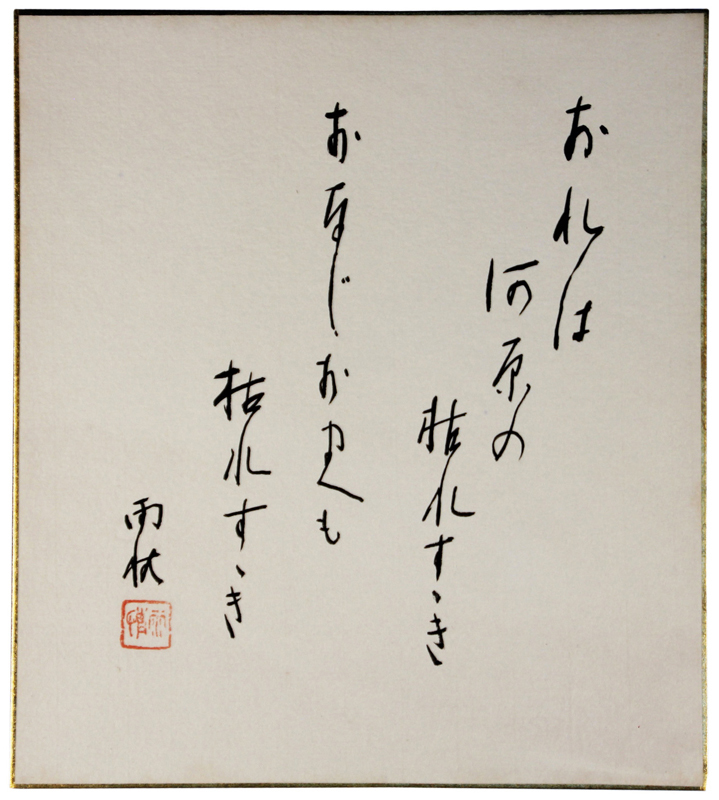 おれは
河原の
枯れすゝき
おなじおまへも
枯れすゝき
雨情